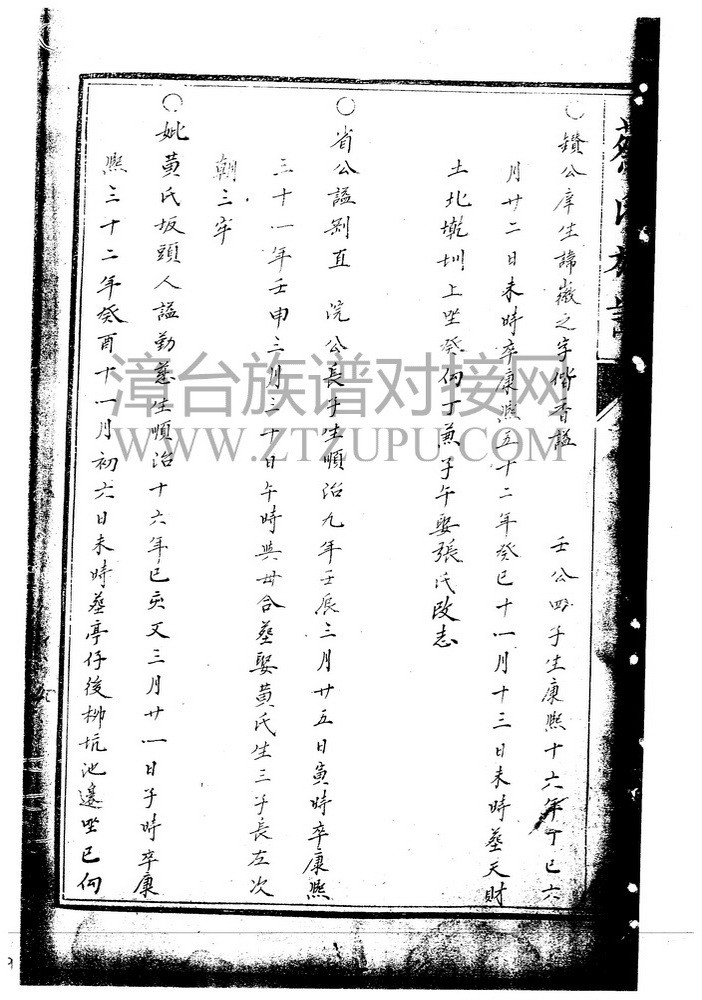 ○鑽公庠生諱嶶之字偕香謚　　壬公四子生康熙十六年丁巳六
月廿二日未時卒康熙五十二年癸巳十一月十三日未時葬天財
土北墘圳上坐癸向丁兼子午娶張氏改志
○省公謚剝直　浣公長子生順治九年壬辰三月廿五日寅時卒康熙
三十一年壬申三月三十日午時與毌合葬娶黃氏生三子長左次
朝三牢
○妣黃氏坂頭人謚勤慈生順治十六年己亥又三月廿一日子時卒康
熙三十二年癸酉十一月初六日未時葬亭仔後柳坑池邊坐巳向
漳台族谱对接网
WWW.ZTZUPU.COM